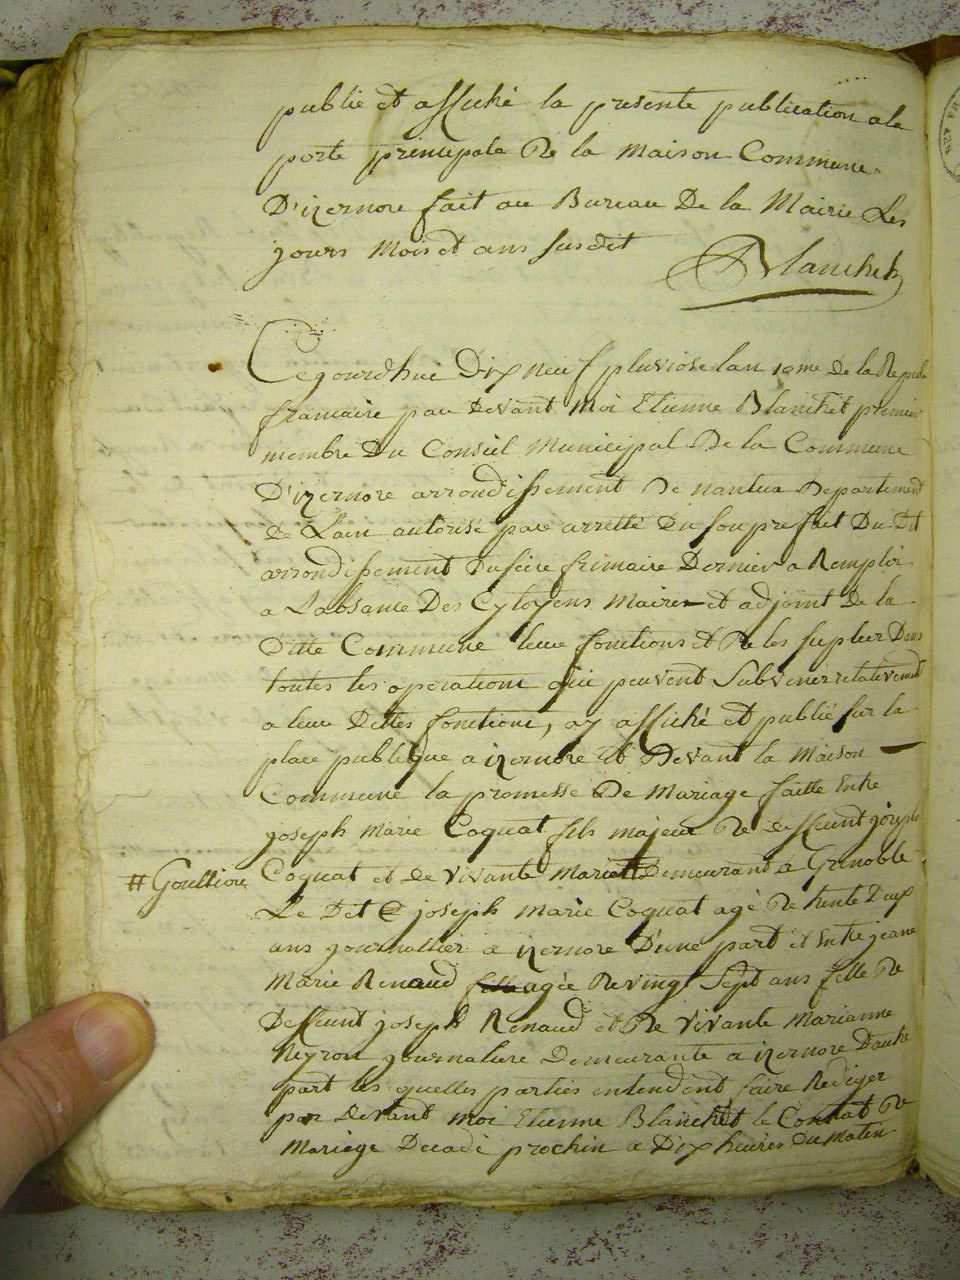 publié et affiché la presente publication ala
porte principale De la maison Commune
D'izernore fait au Bureau De la Mairie Les
jours mois et ans susdit
Blanchet
Cejourdhui Dix neuf pluviose lan 10me de la Repub
francaise par devant moi Etienne Blanchet premier
membre Du Conseil municipal De la Commune
D'izernore arrondissement De nantua Departement
de Lain autorisé par arretté Du souprefait Du dit
arrondissement Duseize frimaire Dernier a Remplir
a Labsance Des Cytoyens maire et adjoint De la
Ditte Commune leur fonctions et De les supleer Dans
toutes les operations qui peuvent Subvenir relativement
a leur Dittes fonctions, ay affiché et publié sur la
place publique a izernore et Devant la maison
Commune la promesse De mariage faitte Entre
joseph marie Coquat fils majeur De deffeunt joseph
# Goullion Coquat et de vivante mariett Demeurant a Grenoble
Le Dit joseph marie Coquat agé De trente Deux
ans journallier a izernore D'une part et Entre jeanne
marie Renaud fille agée De vingt Sept ans fille De
Deffeunt joseph Renaud et De vivante marianne
Neyron journaliere Demeurante a izernore Dautre
part les quelles parties entendent faire Rediger
par devant moi Etienne Blanchet le Contrat De
mariage Decadi prochin a Dix heures du matin